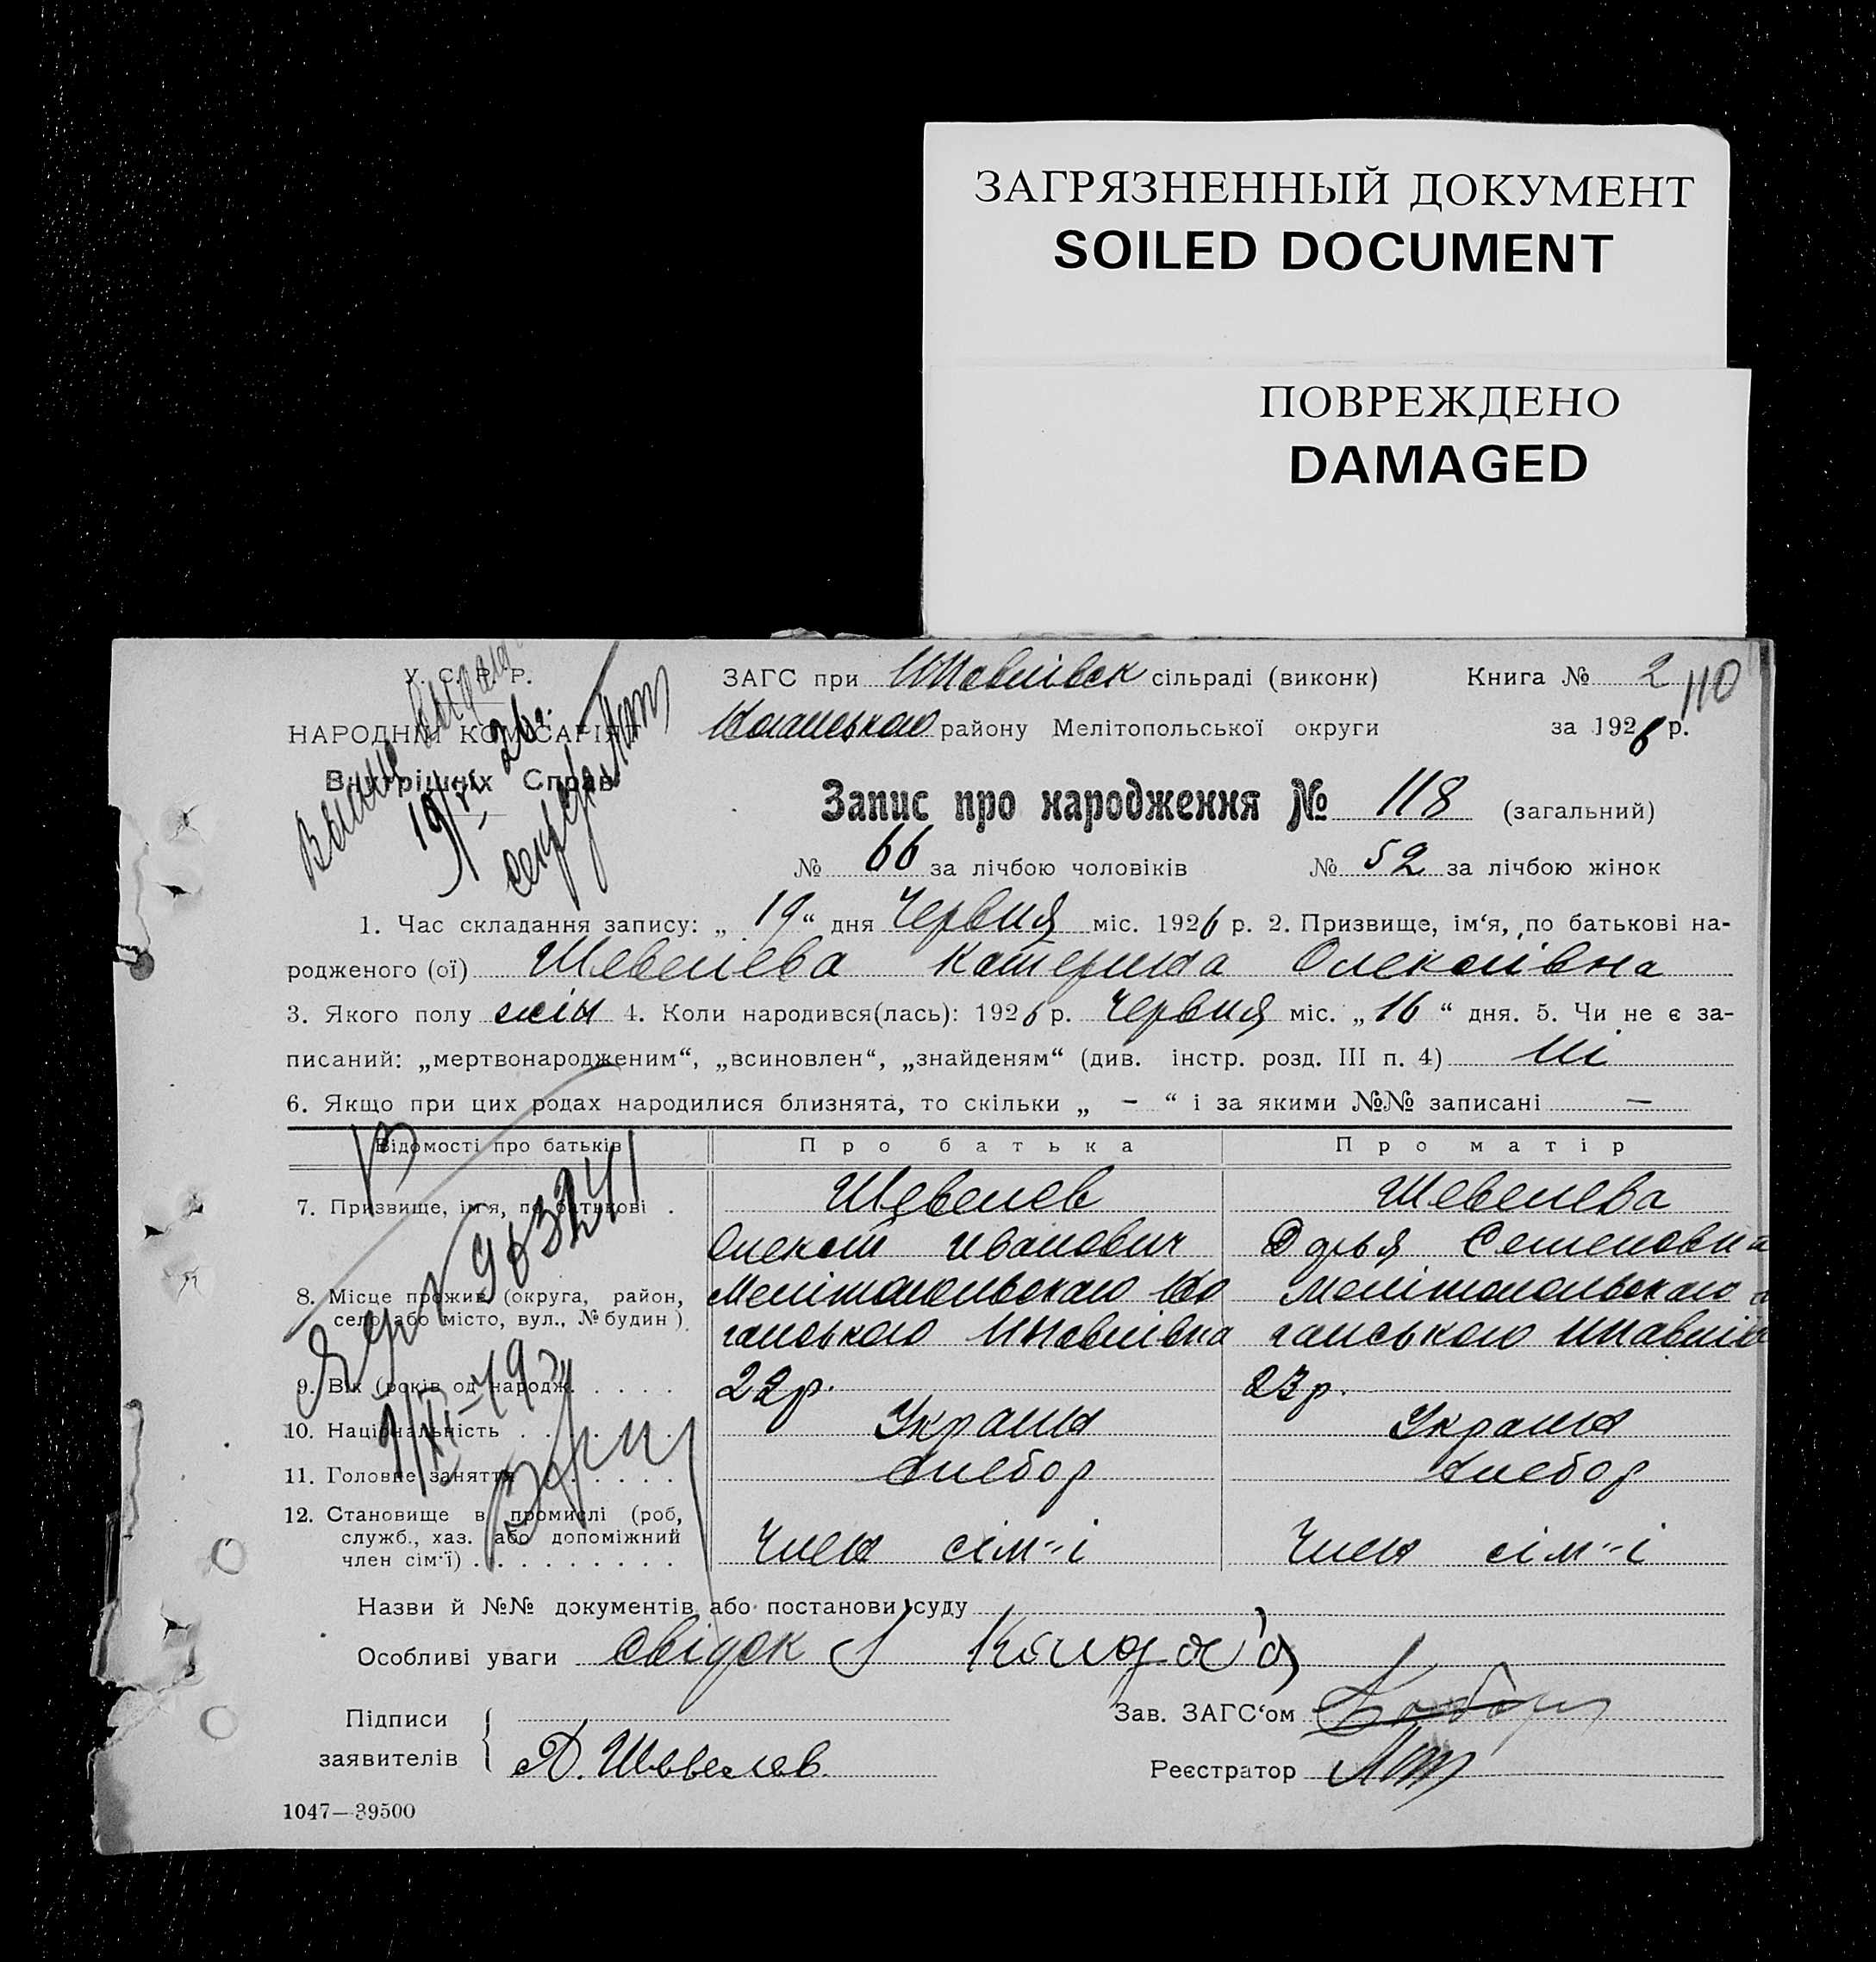 ЗАГРЯЗНЕННЫЙ ДОКУМЕНТ
SOILED DOCUMENT
ПОВРЕЖДЕНО
DAMAGED
У. С. Р. Р.
НАРОДНІЙ КОМІСАРІЯТ
Внутрішніх Справ
19/VI 26 г.
ЗАГС при сільраді (виконк)
Книга № 2
110
району Мелітопольської округи
за 1926 р.
Запис про народження № 118 (загальний)
№ 66 за лічбою чоловіків № 52 за лічбою жінок
1. Час складання запису: „ 19 “ дня Червня міс. 1926 р. 2. Призвище, ім‘я, по батькові на-
родженого (ої) Шевелева Катерина Олексіївна
3. Якого полу жін 4. Коли народився(лась): 1926 р. Червня міс. „ 16 “ дня. 5. Чи не є за-
писаний: „мертвонародженим“, „всиновлен“, „знайденям“ (див. інстр. розд. III п. 4) Ні
6. Якщо при цих родах народилися близнята, то скільки „ – “ і за якими №№ записані —
Відомості про батьків Про батька Про матір
7. Призвище, ім‘я, по батькові . Шевелев Шевелева
Олексій Иванович Дарья Семеновна
8. Місце прожив. (округа, район, Мелітопольскаго Мелітопольскаго
село або місто, вул., № будин.)
9. Вік (років од народж. . . . . 22р. 23р.
10. Національність . . . . . . Украин Украин
11. Головне заняття . . . . . . Хлебор Хлебор
12. Становище в промислі (роб,
служб., хаз. або допоміжний
член сім‘ї) . . . . . . . . . Член сім"і Член сім"і
Назви й №№ документів або постанови суду
Особливі уваги свідок
Підписи
заявителів А. Шевелев.
Зав. ЗАГС‘ом
Реєстратор
1047—39500